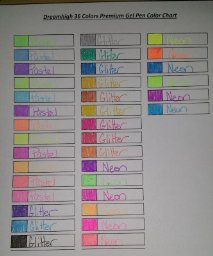 Dreamhigh 36 Colors Premium Gel Pen Color Chart
Glitter
Neon
Pastel
Glitter
Neon
Pastel
Glitter
Neon
Pastel
Glitter
Pastel
Glitter
Neon
Pastel
Glitter
Neon
Pastel
Glitter
Pastel
Glitter
Pastel
Glitter
Neon
Pastel
Neon
Pastel
Neon
Glitter
Neon
Glitter
Neon
Glitter
Neon